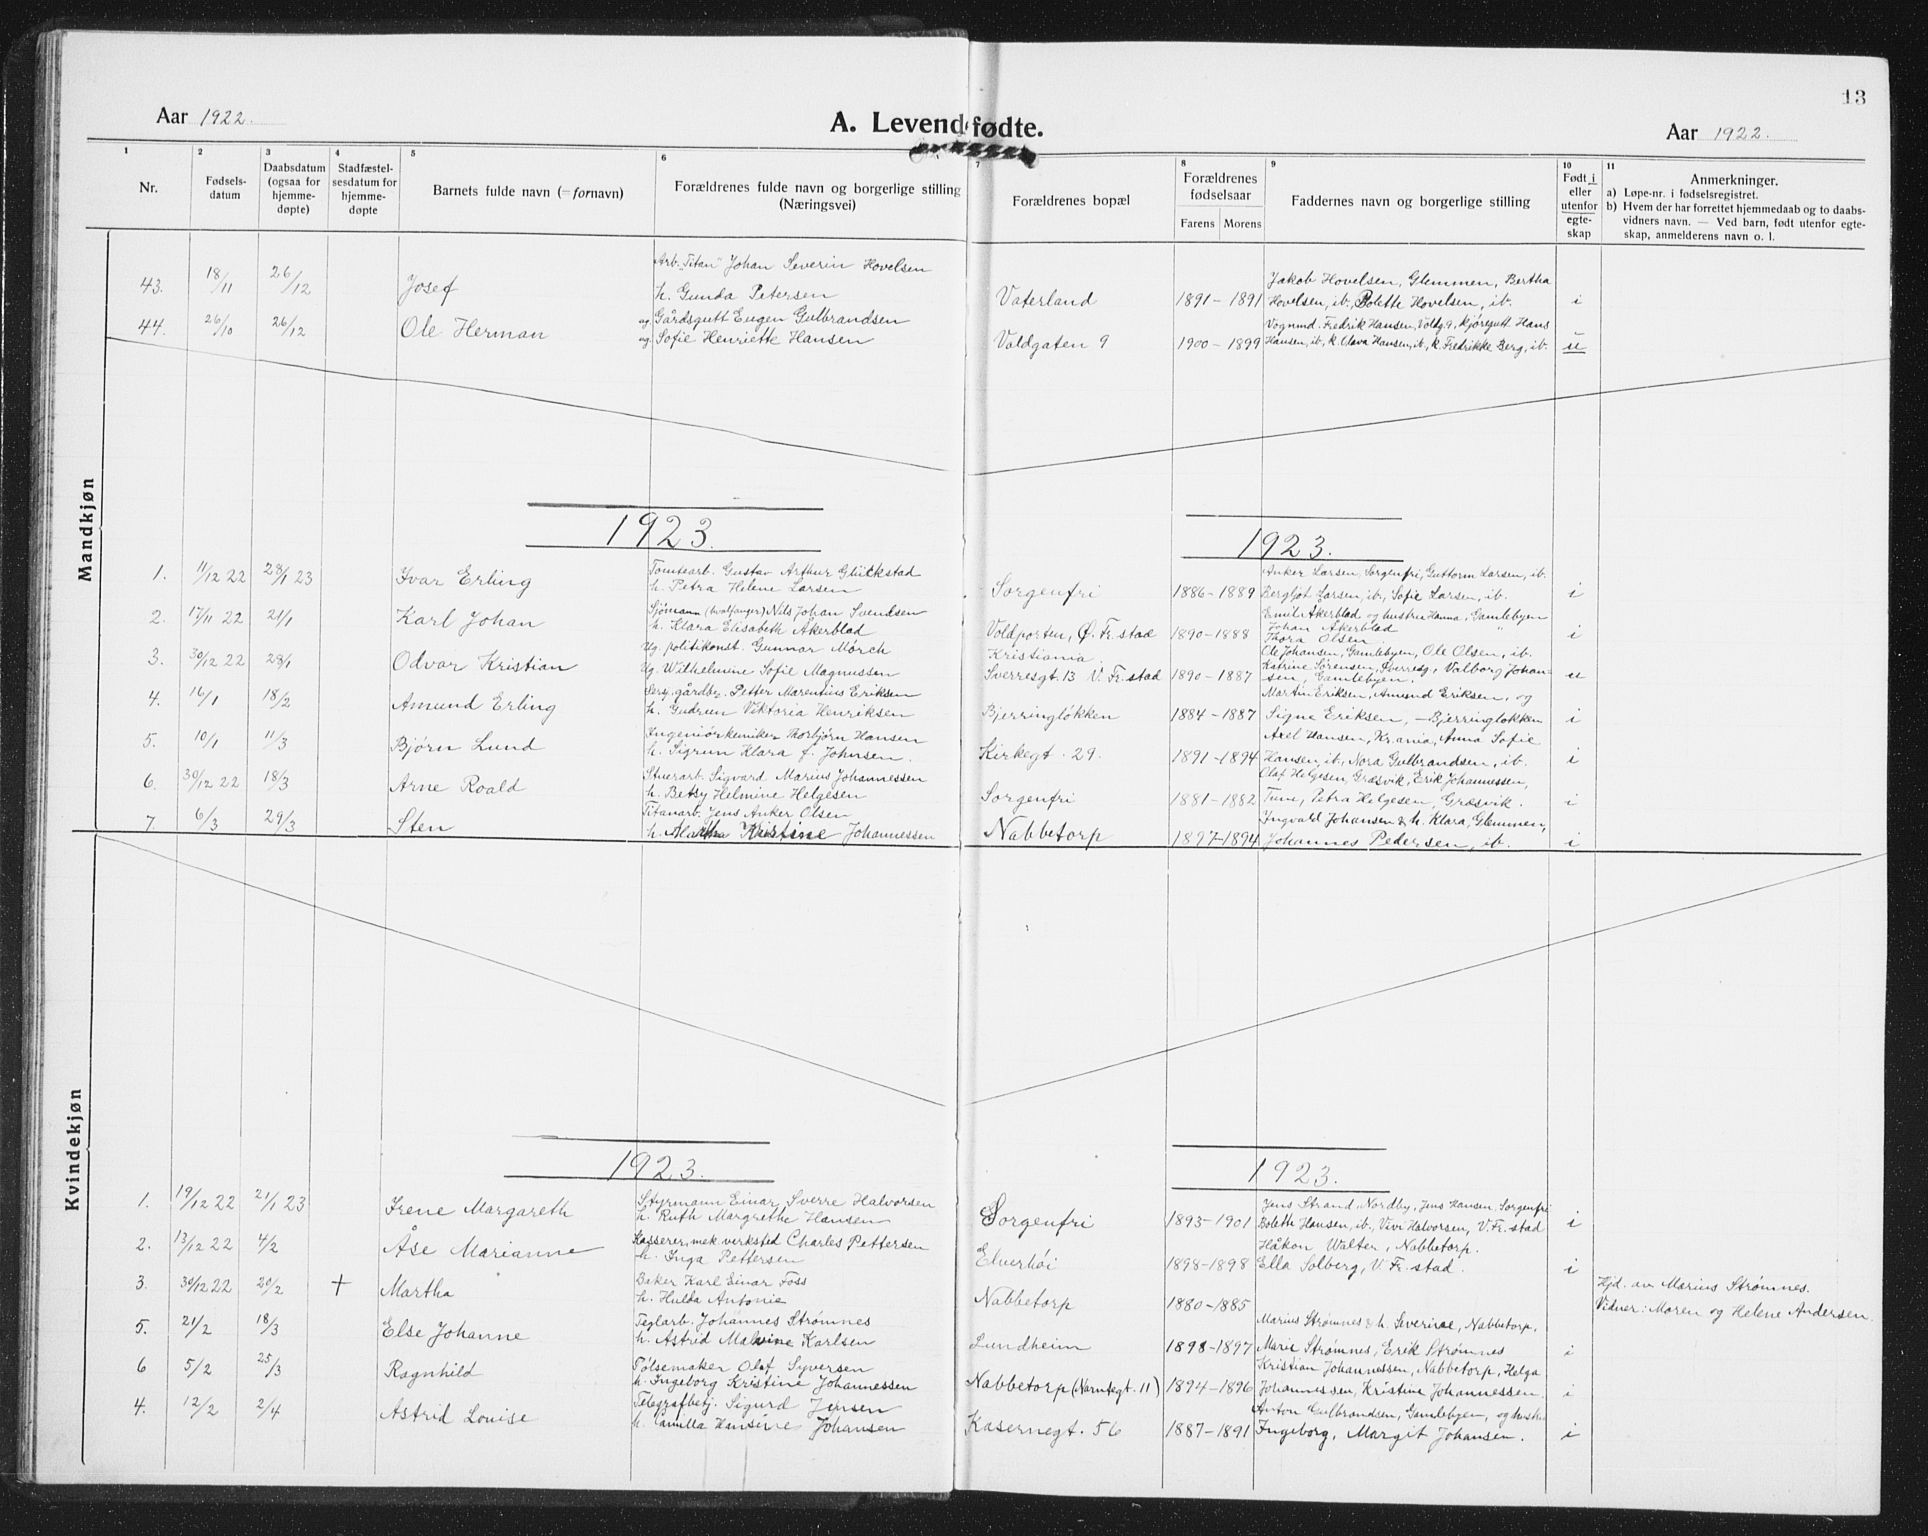 13
Aar 1922.
A. Levendefødte.
Aar 1922.
1 2 3 4 5 6 7 8 9 10 11
Nr.
Fødsels-
datum
Daabsdatum
(ogsaa for
hjemme-
døpte)
Stadfæstel-
sesdatum for
hjemme-
døpte
Barnets fulde navn (= fornavn)
Forældrenes fulde navn og borgerlige stilling
(Næringsvei)
Forældrenes bopæl
Forældrenes
fødselsaar
Farens Morens
Faddernes navn og borgerlige stilling
Født i
eller
utenfor
egte-
skap
Anmerkninger.
a) Løpe-nr. i fødselsregistret.
b) Hvem der har forrettet hjemmedaab og to daabs-
vidners navn. — Ved barn, født utenfor egte-
skap, anmelderens navn o. l.
Mandkjøn
Arb. "Titan" Johan Severin Hovelsen
Jakob Hovelsen, Glemmen, Bertha
43. 18/11 26/12 Josef h. Gunda Petersen Vaterland 1891-1891 Hovelsen, ib., Bolette Hovelsen, ib. i
ug. Gårdsgutt Eugen Gulbrandsen
Vognmd. Fredrik Hansen, Voldg. 9, kjøregutt Hans
44. 26/10 26/12 Ole Herman ug. Sofie Henriette Hansen Voldgaten 9 1900-1899 Hansen, ib, k. Olava Hansen, ib, k. Fredrikke Berg, ib. u
1923. 1923.
Tomtearb. Gustav Arthur Glückstad
Anker Larsen, Sorgenfri, Guttorm Larsen, ib.
1. 11/12 22 28/1 23 Ivar Erling h. Petra Helene Larsen Sorgenfri 1886-1889 Bergljot Larsen, ib, Sofie Larsen, ib. i
Sjømann (hvalfanger) Nils Johan Svendsen
Emil Åkerblad og hustru Hanna, Gamlebyen
2. 17/11 22 21/1 Karl Johan h. Klara Elisabeth Åkerblad Voldporten, Ø. Fr.stad 1890-1888 Johan Åkerblad "
Thora Olsen i
Ug. politikonst. Gunnar Mørch Kristiania.
Ole Johansen, Gamlebyen, Ole Olsen, ib.
3. 30/12 22 28/1 Odvar Kristian Ug. Wilhelmine Sofie Magnussen Sverresgt. 13 V. Fr.stad 1890-1887 Katrine Sørensen, Sverresg, Valborg Johan-
sen, Gamlebyen. u
gårdbr. Petter Marentius Eriksen
Martin Eriksen, Amund Eriksen, og
4. 16/1 18/2 Amund Erling h. Gudrun Viktoria Henriksen Bjerringløkken 1884-1887 Signe Eriksen, - Bjerringløkken i
Ingeniörkemiker Thorbjörn Hansen
Axel Hansen, Kr.ania, Anna Sofie
5. 10/1 11/3 Bjørn Lund h. Sigrun Klara f. Johnsen. Kirkegt. 29. 1891-1894 Hansen, ib., Nora Gulbrandsen, ib. i
Stuerarb. Sigvard Marius Johannessen
Olaf Helgesen, Græsvik, Erik Johannessen,
6. 30/12 22 18/3 Arne Roald h. Betsy Helmine Helgesen Sorgenfri 1881-1882 Tune, Petra Helgesen, Græsvik. i
Titanarb. Jens Anker Olsen
Ingvald Johansen & h. Klara, Glemmen,
7 6/3 29/3 Sten h. Martha Kristine Johannessen Nabbetorp 1897-1894 Johannes Pedersen, ib. i
Kvindekjøn
1923. 1923.
Styrmann Einar Sverre Halvorsen
Jens Strand, Nordby, Jens Hansen, Sorgenfri
1. 19/12 22 21/1 23 Irene Margareth h. Ruth Margrethe Hansen Sorgenfri 1893-1901 Boleth Hansen, ib., Vivi Halvorsen, V. Fr.stad i
Kasserer, mek verksted Charles Pettersen
Håkon Walter, Nabbetorp.
2. 13/12 22 4/2 Åse Marianne h. Inga Pettersen Elverhöi 1898-1898 Ella Solberg, V. Fr.stad. i
Baker Karl Einar Foss
3. 30/12 22 20/2 + Martha h. Hulda Antonie Nabbetorp 1880-1885
Hjd. av Marius Strømnes.
Vidner: Moren og Helene Andersen.
Teglarb. Johannes Strømnes
Marius Strømnes & h. Severine, Nabbetorp,
5. 21/2 18/3 Else Johanne h. Astrid Malvine Karlsen Lundheim 1898-1897 Marie Strømnes, Erik Strømnes i
Pølsemaker Olaf Syversen
Kristian Johannessen, Nabbetorp, Helga
6 5/2 25/3 Ragnhild h. Ingeborg Kristine Johannessen Nabbetorp 1894-1896 Johannessen, Kristine Johannessen. i
Telegrafbetj. Sigurd Jensen
Anton Gulbrandsen, Gamlebyen, og hustr.
4. 12/2 2/4 Astrid Louise h. Camilla Hansine Johansen Kasernegt. 56 1887-1891 Ingeborg, Margit Johansen. i